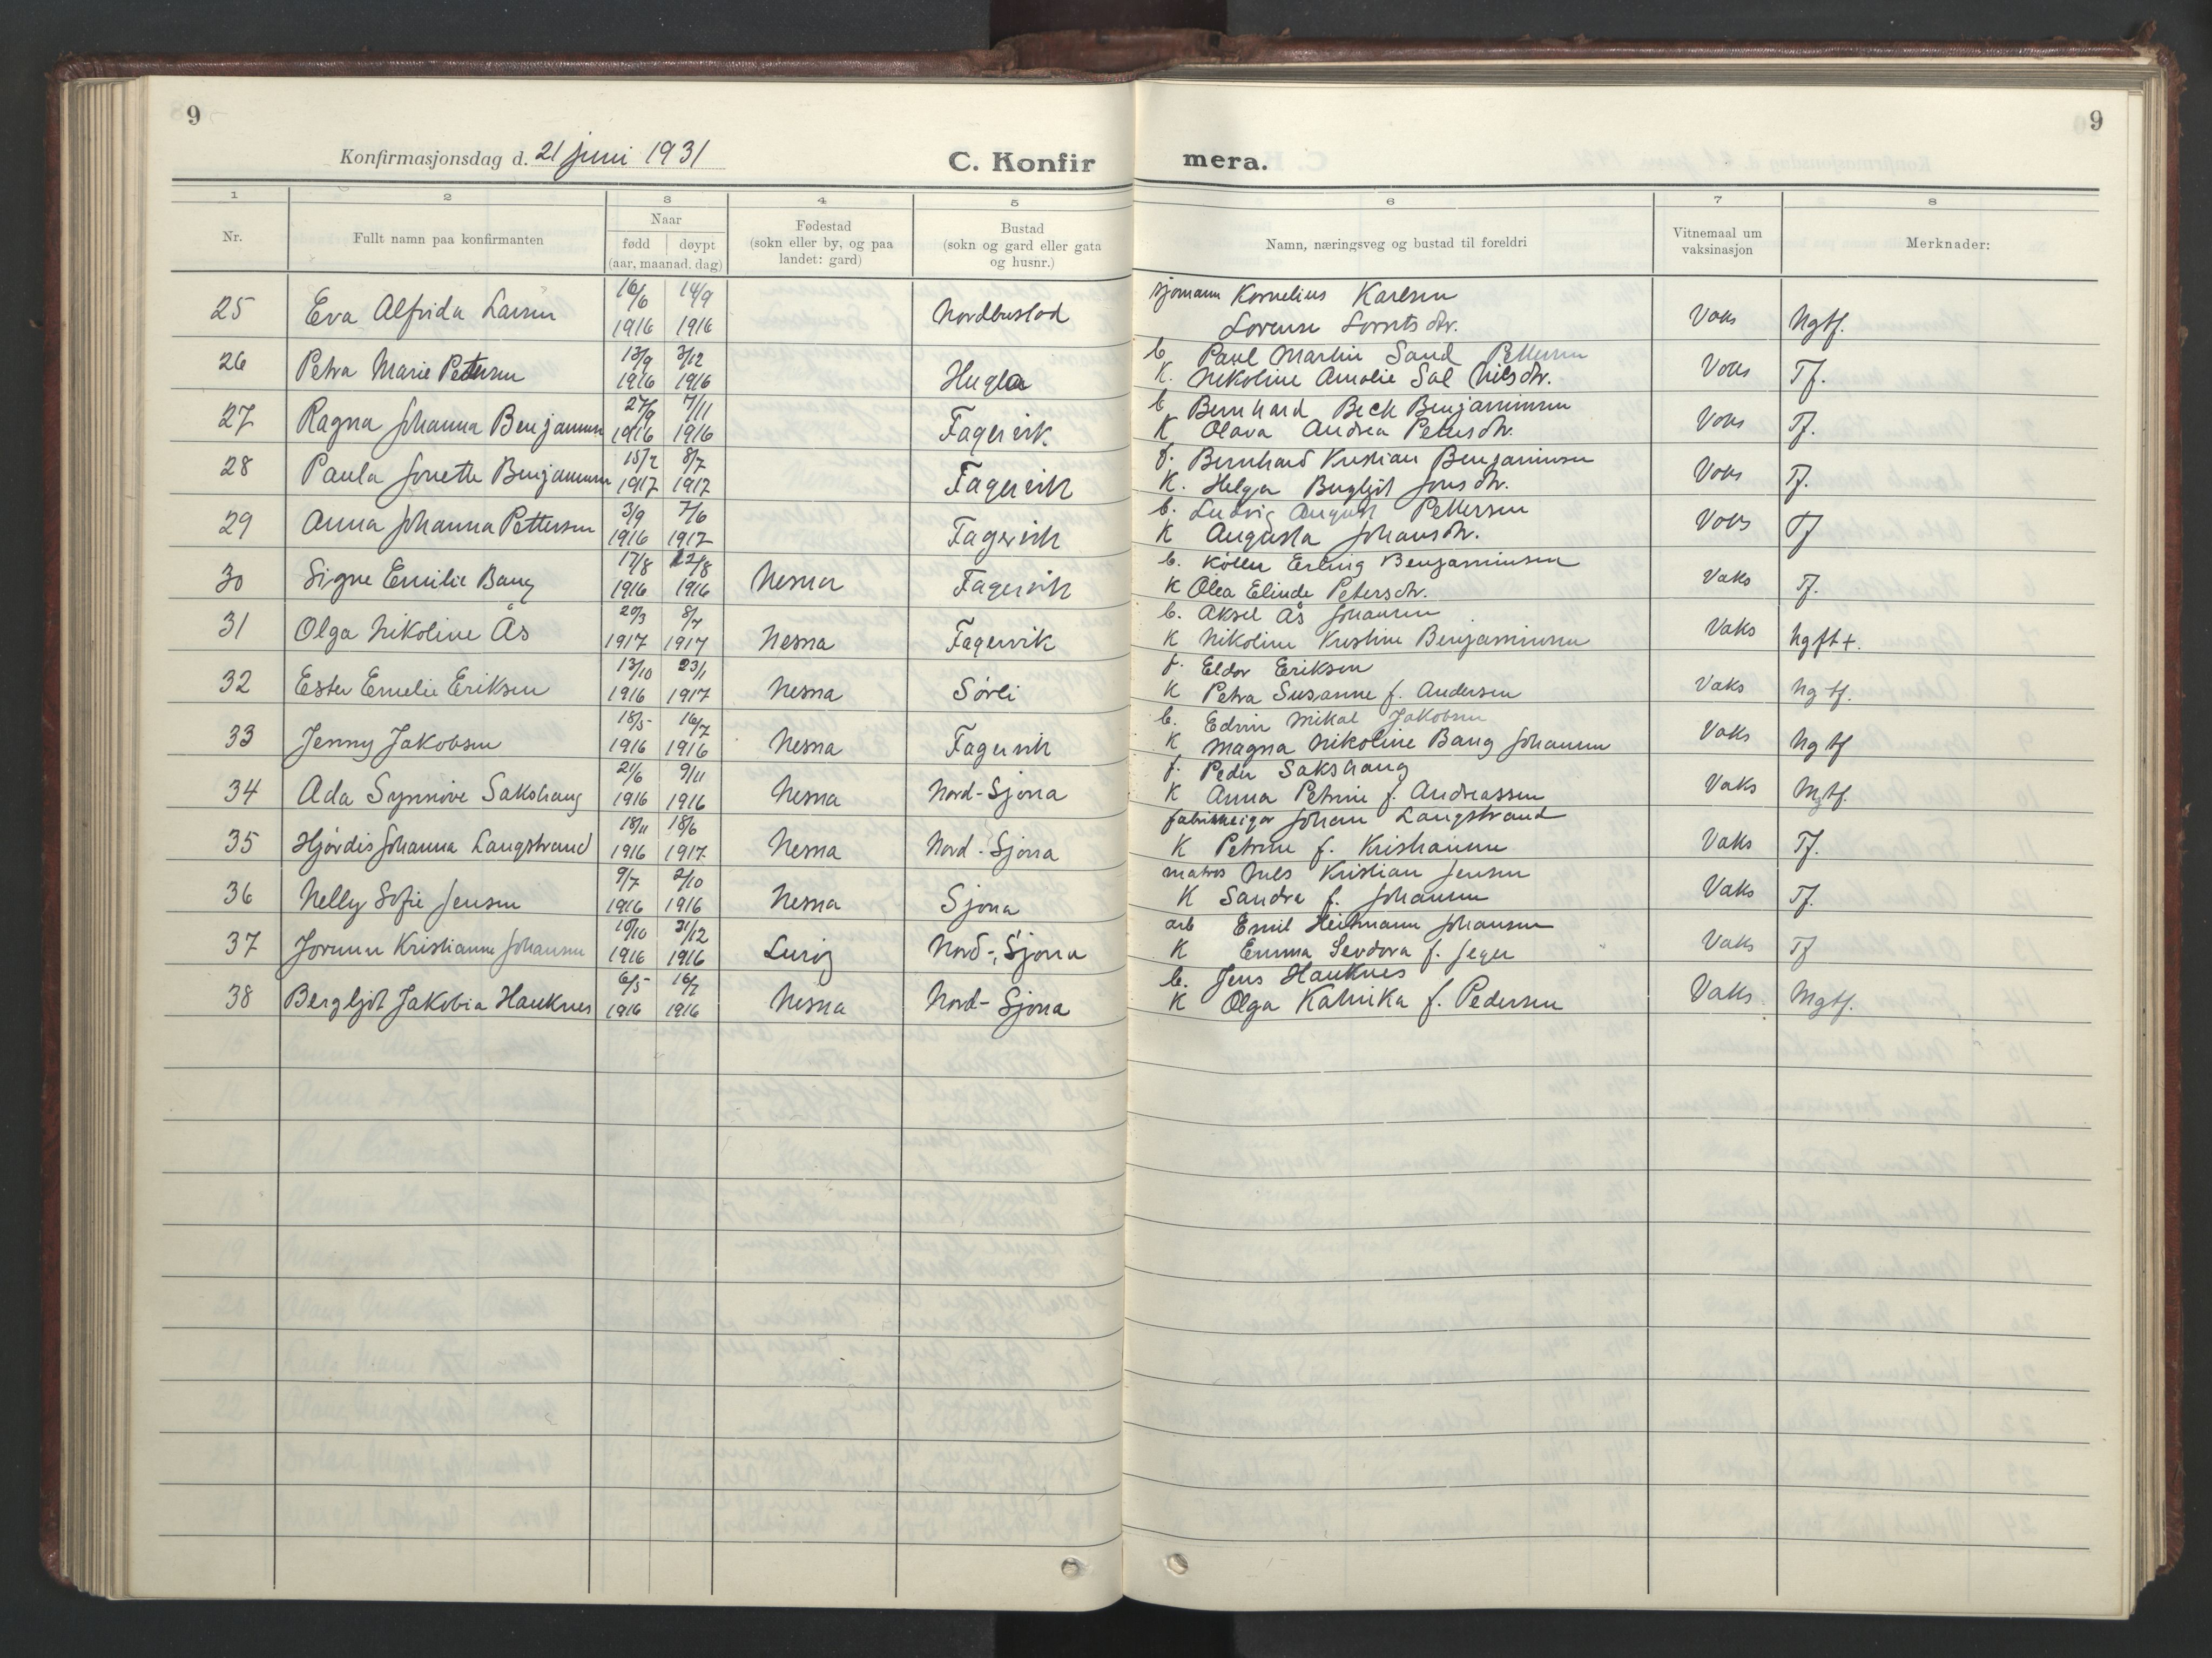 9
9
Konfirmasjonsdag d. 21 juni 1931
C. Konfirmera.
1 2 3 4 5 6 7 8
Nr.
Fullt namn paa konfirmanten
Naar
fødd døypt
(aar, maanad. dag)
Fødestad
(sokn eller by, og paa
landet: gard)
Bustad
(sokn og gard eller gata
og husnr.)
Namn, næringsveg og bustad til foreldri
Vitnemaal um
vaksinasjon
Merknader:
25 Eva Alfrida Larsen 16/6 1916 14/9 1916 Nordbustad sjømann Kornelius Karlsen
Lorense Lorntsdtr. Vaks Ngtf.
26 Petra Marie Pettersen 13/9 1916 3/12 1916 Hugla b. Paul Martin Sand Pettersen
K. Nikoline Amalie Sal Nilsdtr. Vaks Tf.
27 Ragna Johanna Benjaminsen 27/9 1916 7/11 1916 Fagervik b Bernhard Beck Benjaminsen
K Olava Andrea Petersdtr. Vaks Tf.
28 Paula Jonette Benjaminsen 15/2 1917 8/7 1917 Fagervik f. Bernhard Kristian Benjaminsen
K. Helga Bergljot Jonsdtr. Vaks Tf.
29 Anna Johanna Pettersen 3/9 1916 7/6 1917 Fagervik b. Ludvig August Pettersen
K Augusta Johansdtr. Vaks Tf
30 Signe Emilie Bang 17/8 1916 22/8 1916 Nesna Fagervik b. Køller Erling Benjaminsen
K Olea Elinde Petersdtr. Vaks Tf.
31 Olga Nikoline Ås 20/3 1917 8/7 1917 Nesna Fagervik b. Aksel Ås Johansen
K Nikoline Kristine Benjaminsen Vaks Ngft+.
32 Ester Emelie Eriksen 13/10 1916 23/1 1917 Nesna Sørli f. Eldor Eriksen
K Petra Susanne f. Andersen Vaks Ng tf.
33 Jenny Jakobsen 18/5 1916 16/7 1916 Nesna Fagervik b. Edvin Mikal Jakobsen
K Magna Nikoline Bang Johansen Vaks Ng tf
34 Ada Synnøve Sakshaug 21/6 1916 9/11 1916 Nesna Nord-Sjona f. Peder Sakshaug
K Anna Petrine f. Andreassen Vaks Mgtf.
35 Hjørdis Johanna Langstrand 18/11 1916 18/6 1917 Nesna Nord-Sjona fabrikkeigar Johan Langstrand
K Petrine f. Kristiansen Vaks Tf.
36 Nelly Sofie Jensen 9/7 1916 2/10 1916 Nesna Sjona matros Nils Kristian Jensen
K Sandra f. Johansen Vaks Tf.
37 Jorunn Kristianne Johansen 10/10 1916 31/12 1916 Lurøy Nord-Sjona arb Emil Heitmann Johansen
K Emma Sevdora f. Jeger Vaks Tf
38 Bergljot Jakobia Hauknes 6/5 1916 16/7 1916 Nesna Nord-Sjona b. Jens Hauknes
K Olga Kalnika f. Pedersen Vaks. Mgtf.